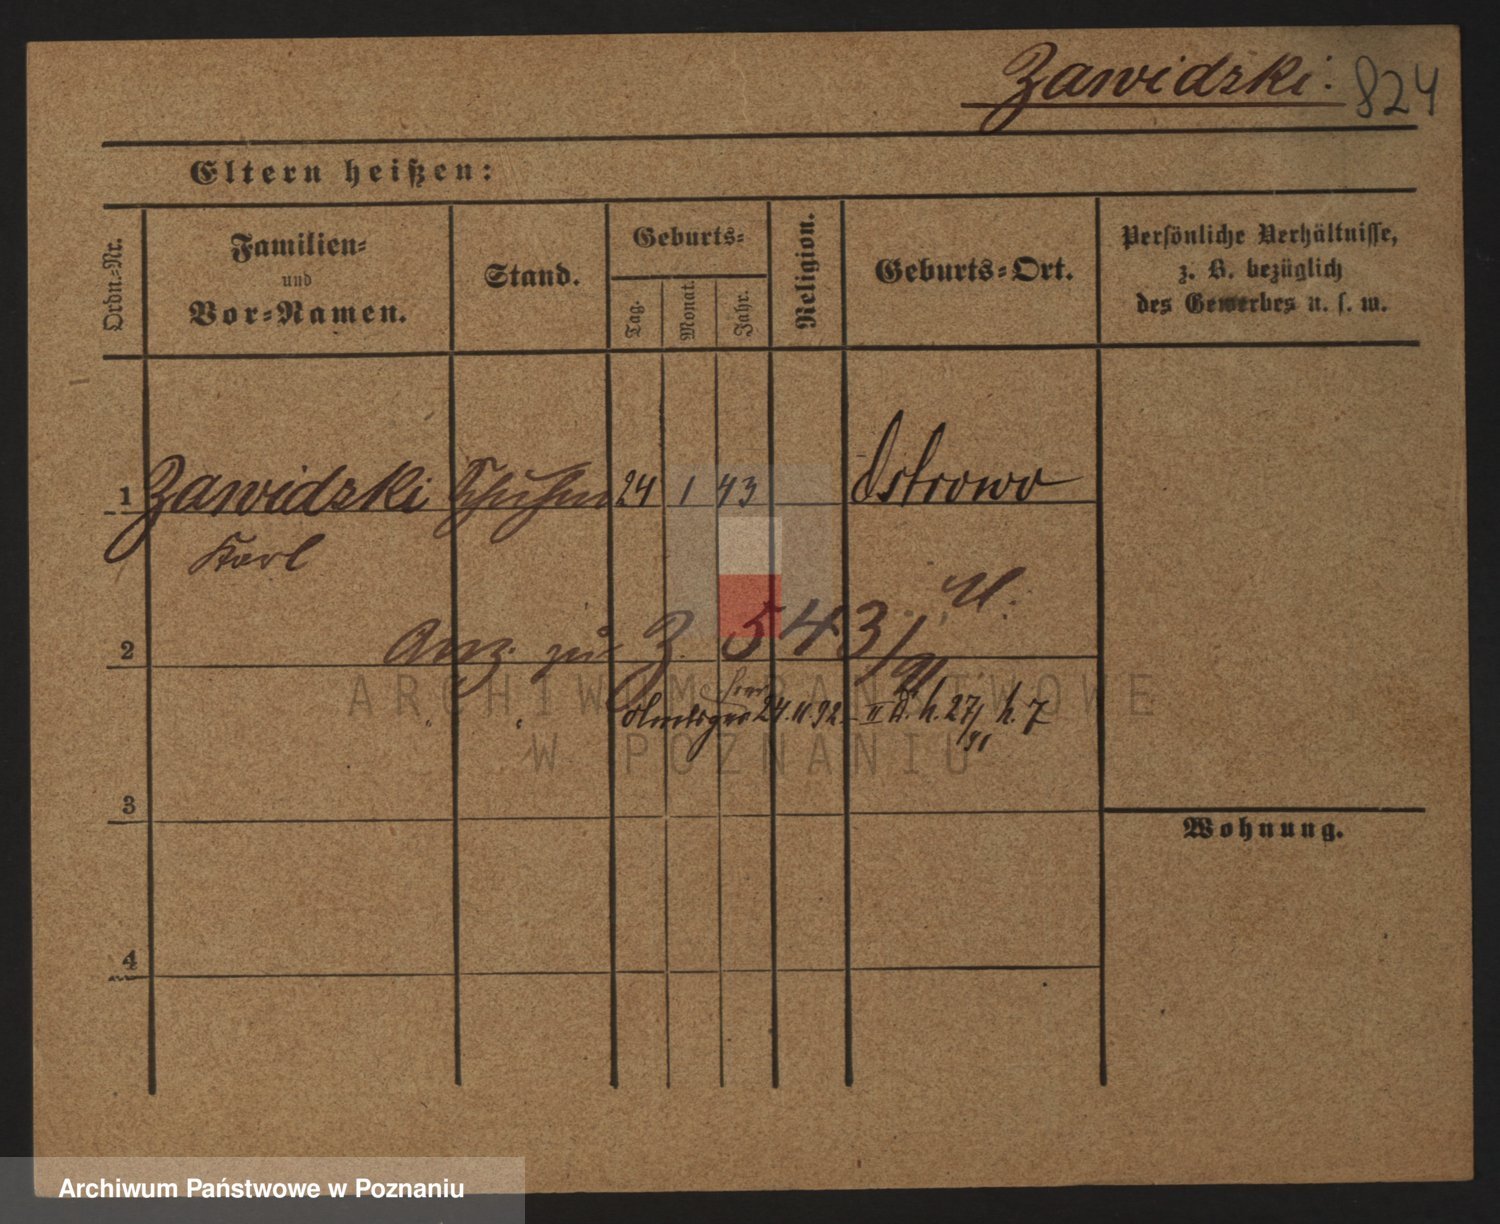 Zawidzki. 824
Eltern heißen:
Ordn.-Nr.
Familien-
und
Vor-Namen.
Stand.
Geburts-
Tag.
Monat.
Jahr.
Religion.
Geburts-Ort.
Persönliche Verhältnisse,
z. B. bezüglich
des Gewerbes u. s. w.
1 Zawidzki 24 1 43 Ostrowo
Karl
Anz. zu Z. 543/91
2
24.11.92 II A. h. 27/91 h. 7
3
Wohnung.
4
ARCHIWUM PAŃSTWOWE
W POZNANIU
Archiwum Państwowe w Poznaniu